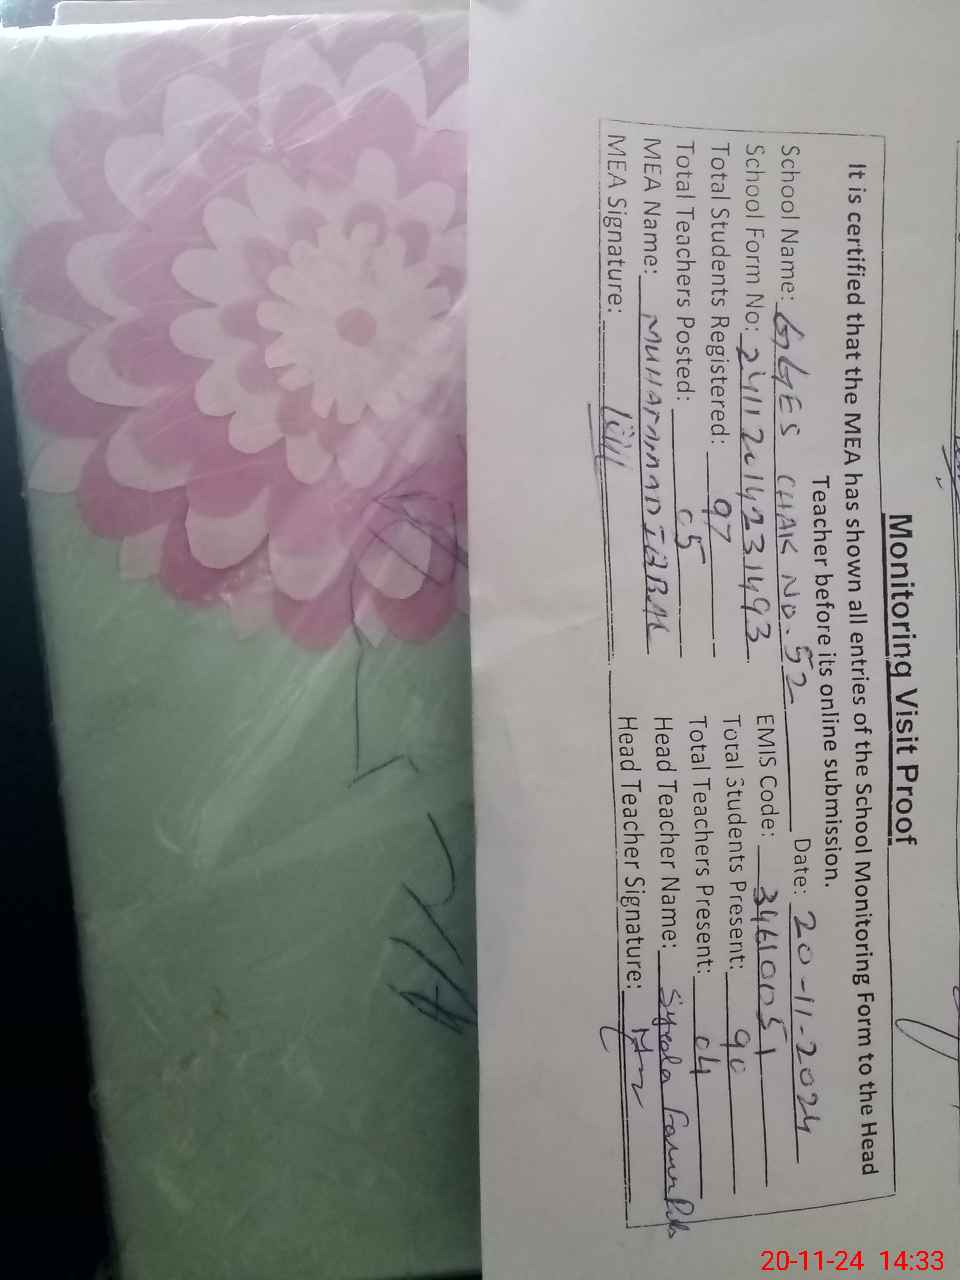 Monitoring Visit Proof
It is certified that the MEA has shown all entries of the School Monitoring Form to the Head
Teacher before its online submission.
School Name: GGES CHAK NO. 52 Date: 20-11-2024
School Form No: EMIS Code: 34610051
Total Students Registered: 97 Total Students Present: 90
Total Teachers Posted: 05 Total Teachers Present: 04
MEA Name: MUHAMMAD IQBAL Head Teacher Name: Syeda
MEA Signature: Head Teacher Signature:
20-11-24 14:33